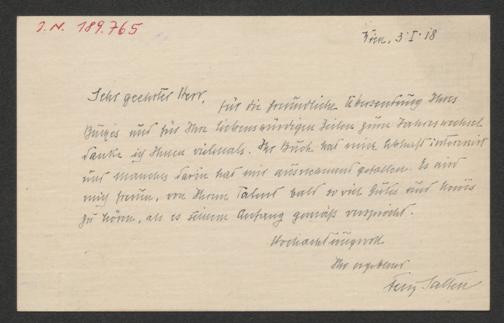 J. N. 189.765
Wien, 3. I. 18
Sehr geehrter Herr,
für die freundliche Übersendung Ihres
Buches und für Ihre liebenswürdigen Zeilen zum Jahreswechsel
danke ich Ihnen vielmals. Ihr Buch hat mich lebhaft interessirt
und manches darin hat mir ausnehmend gefallen. Es wird
mich freuen, von Ihrem Talent bald so viel Gutes und Neues
zu hören, als es seinem Anfang gemäß verspricht.
Hochachtungsvoll
Ihr ergebener
Felix Salten